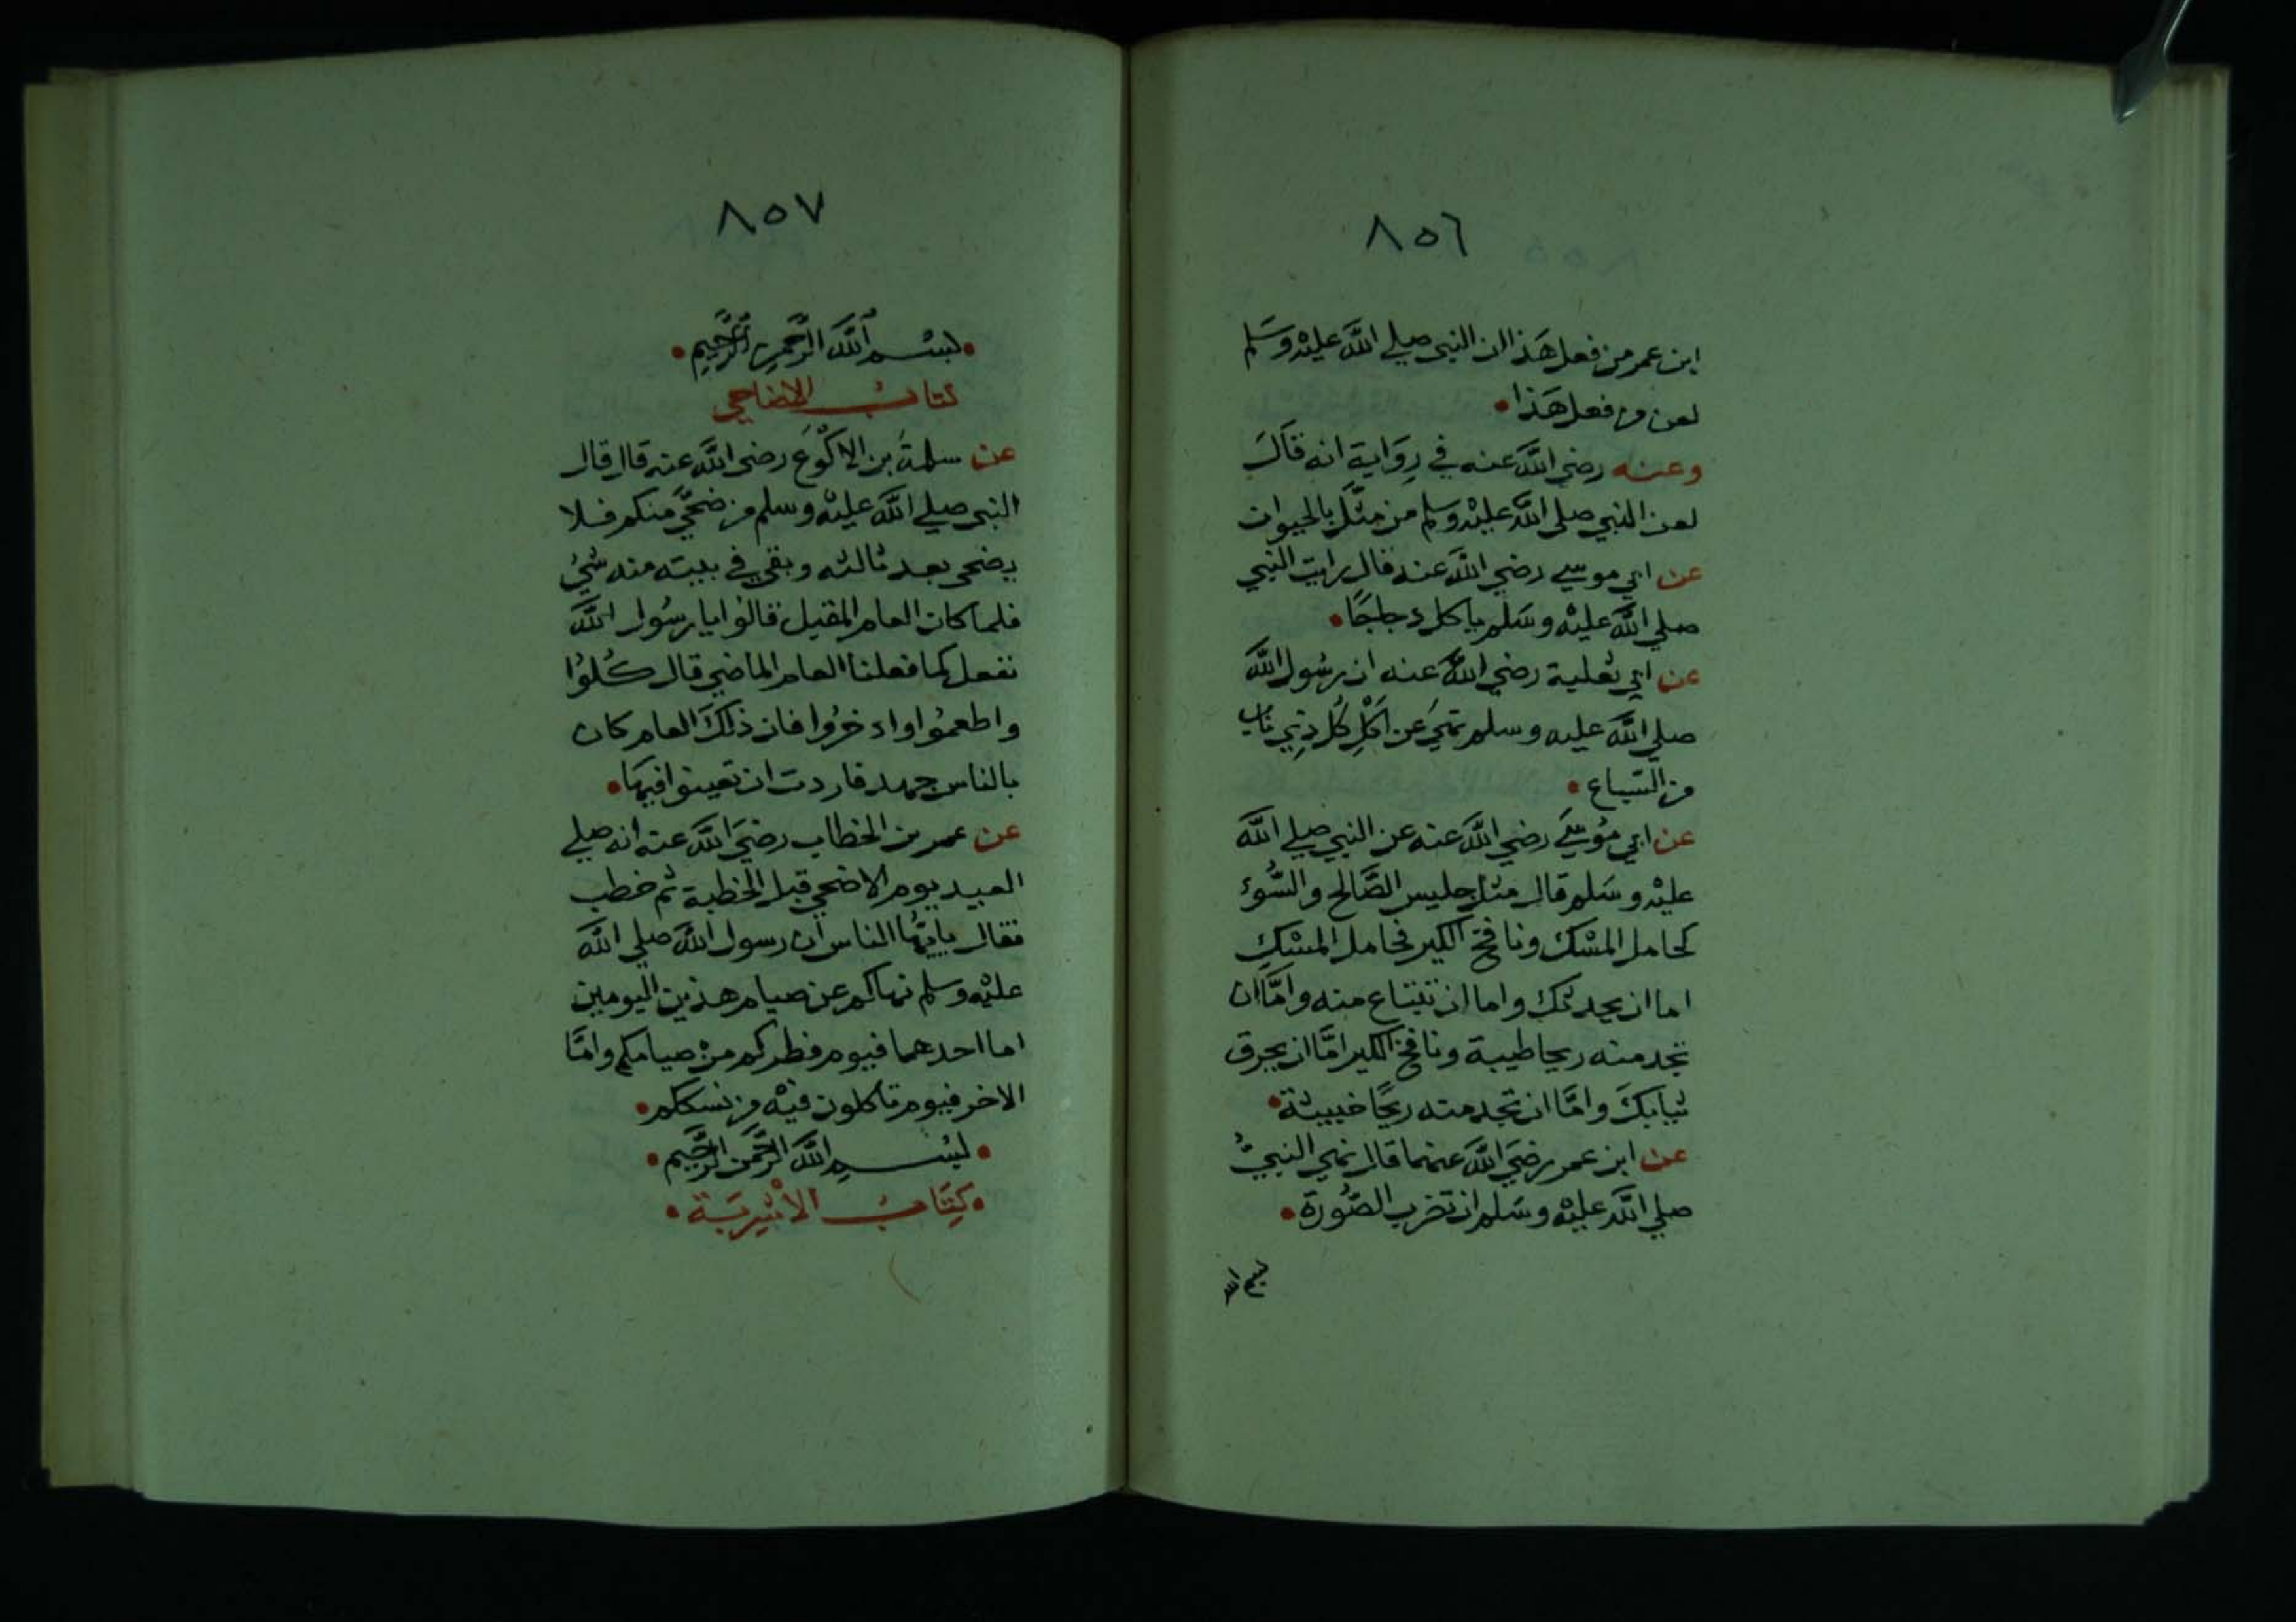 ٨٥٦
ابن عمر من فعل هَذا ان النبي صلي اللَّه عليْه وسَلم
لعن من فعل هَذا
وعنه رضي اللَّه عنه في رِوَاية انه قاَلَ
لعن النبي صلي اللَّه عليْه وسلم من مثَّل بالحيوان
عن ابي موسي رضي اللَّه عنه قال رايت النبي
صلي اللَّه عليْه وسَلم ياكل دجاجًا
عن ابي ثعلبة رضي اللَّه عنه ان رسُول اللَّه
صلي اللَّه عليه وسلم نهيَ عن اَكْلِ كُل ذِي ناب
من السّباع
عن ابي مُوسَي رضي اللَّه عنه عن النبي صلي اللَّه
عليْه وسَلم قال مثل جليس الصَّالح والسُّوء
كحامل المسْك ونافخ الكير فحامل المسْكِ
اما ان يحديك واما ان تبتاع منه وامَّا ان
تجد منه ريحا طيبة ونافخ الكير امَّا ان يحرق
ثيابكَ وامَّا ان تجد منه ريحًا خبيثة
عن ابن عمر رضيَ اللَّه عنهما قال نهي النبيُّ
صلي اللَّه عليْه وسَلم ان تضرب الصُّورة
بسم الله
٨٥٧
بسْم اَللَّه الرَّحمنِ الرَّحِيمِ
كتابُ الاضاحي
عن سلمةَ بن الاَكْوَع رضي اللَّه عنه قال قال
النبي صلي اللَّه عليْه وسلم من ضحَّي منكم فلا
يضحي بعد ثالثه وبقي في بيته منه شيُ
فلما كان العام المقبل قالوُا يا رسُول اللَّه
نفعل كما فعلنا العام الماضي قال كُلوُا
واطعمُوا وادخرُوا فان ذلكَ العام كان
بالناس جهد فاردت ان تعينوا فيهَا
عن عمر بن الخطاب رضيَ اللَّه عنه انه صلي
العيد يوم الاضحي قبل الخطبة ثم خطب
فقال يايّهُا الناس ان رسول اللَّه صلي اللَّه
عليْه وسلم نهاكم عن صيام هذين اليومين
اما احدهما فيوم فطركم منْ صيامكم وامَّا
الاخر فيوم تاكلون فيْه من نسككم
بسْم اللَّه الرَّحمن الرَّحيم
كِتَابُ الاْشْرِبَة